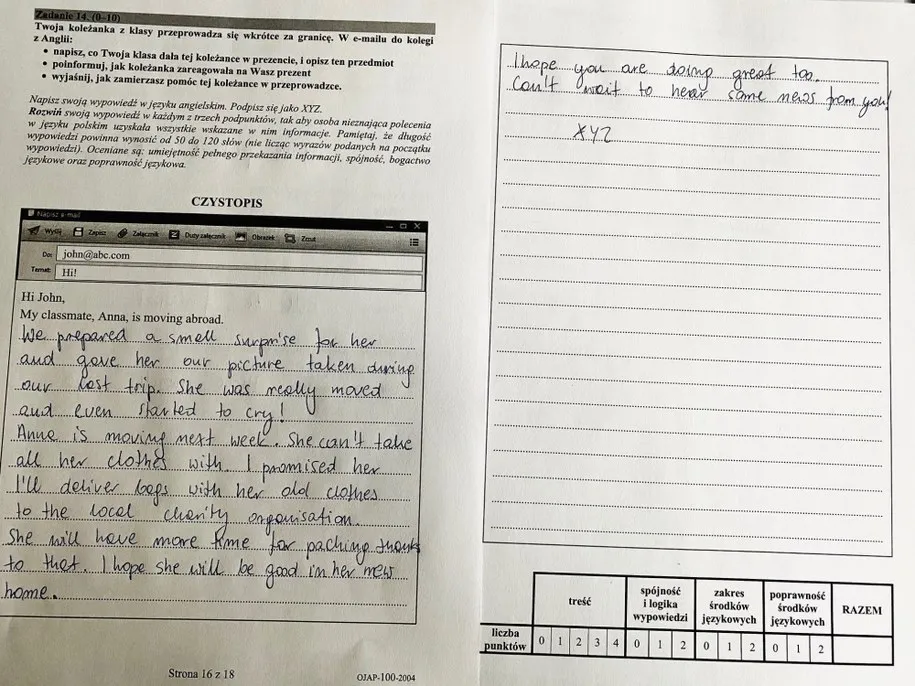 Zadanie 14. (0–10)
Twoja koleżanka z klasy przeprowadza się wkrótce za granicę. W e-mailu do kolegi
z Anglii:
• napisz, co Twoja klasa dała tej koleżance w prezencie, i opisz ten przedmiot
• poinformuj, jak koleżanka zareagowała na Wasz prezent
• wyjaśnij, jak zamierzasz pomóc tej koleżance w przeprowadzce.
Napisz swoją wypowiedź w języku angielskim. Podpisz się jako XYZ.
Rozwiń swoją wypowiedź w każdym z trzech podpunktów, tak aby osoba nieznająca polecenia
w języku polskim uzyskała wszystkie wskazane w nim informacje. Pamiętaj, że długość
wypowiedzi powinna wynosić od 50 do 120 słów (nie licząc wyrazów podanych na początku
wypowiedzi). Oceniane są: umiejętność pełnego przekazania informacji, spójność, bogactwo
językowe oraz poprawność językowa.
CZYSTOPIS
Napisz e-mail
Wyślij Zapisz Załącznik Duży załącznik Obrazek Zrzut
Do: john@abc.com
Temat: Hi!
Hi John,
My classmate, Anna, is moving abroad.
We prepared a small surprise for her
and gave her our picture taken during
our last trip. She was really moved
and even started to cry!
Anna is moving next week. She can't take
all her clothes with. I promised her
I'll deliver bags with her old clothes
to the local charity organisation.
She will have more time for packing thanks
to that. I hope she will be good in her new
home.
Strona 16 z 18
OJAP-100-2004
I hope you are doing great too.
Can't wait to hear some news from you!
XYZ
treść spójność i logika wypowiedzi zakres środków językowych poprawność środków językowych RAZEM
liczba punktów 0 1 2 3 4 0 1 2 0 1 2 0 1 2